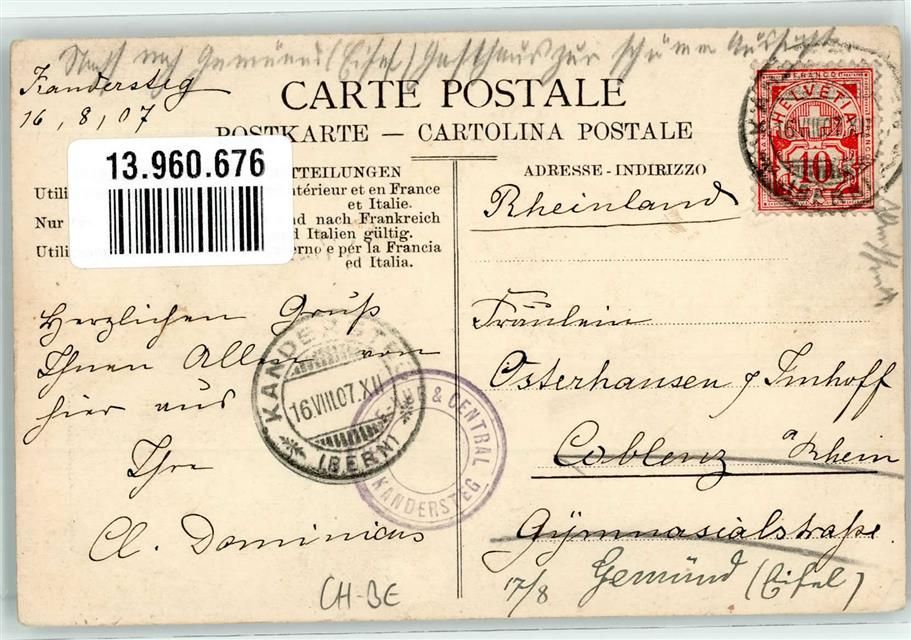 Gemünd (Eifel) Gasthaus zur
Kandersteg
16, 8, 07
CARTE POSTALE
POSTKARTE — CARTOLINA POSTALE
13.960.676
TTEILUNGEN
Utili
ntérieur et en France
et Italie.
Nur
nd nach Frankreich
d Italien gültig.
Utili
erno e per la Francia
ed Italia.
Herzlichen Gruß
Ihnen Allen von
hier aus
Ihre
Cl. Dominicus
CH-BE
KANDERSTEG
16.VIII.07.XII
(BERN)
& CENTRAL
KANDERSTEG
FRANCO
HELVETIA
10
16.VIII.07
ADRESSE - INDIRIZZO
Rheinland
Fräulein
Osterhausen Imhoff
Coblenz a Rhein
Gymnasialstraße
17/8 Gemünd (Eifel)